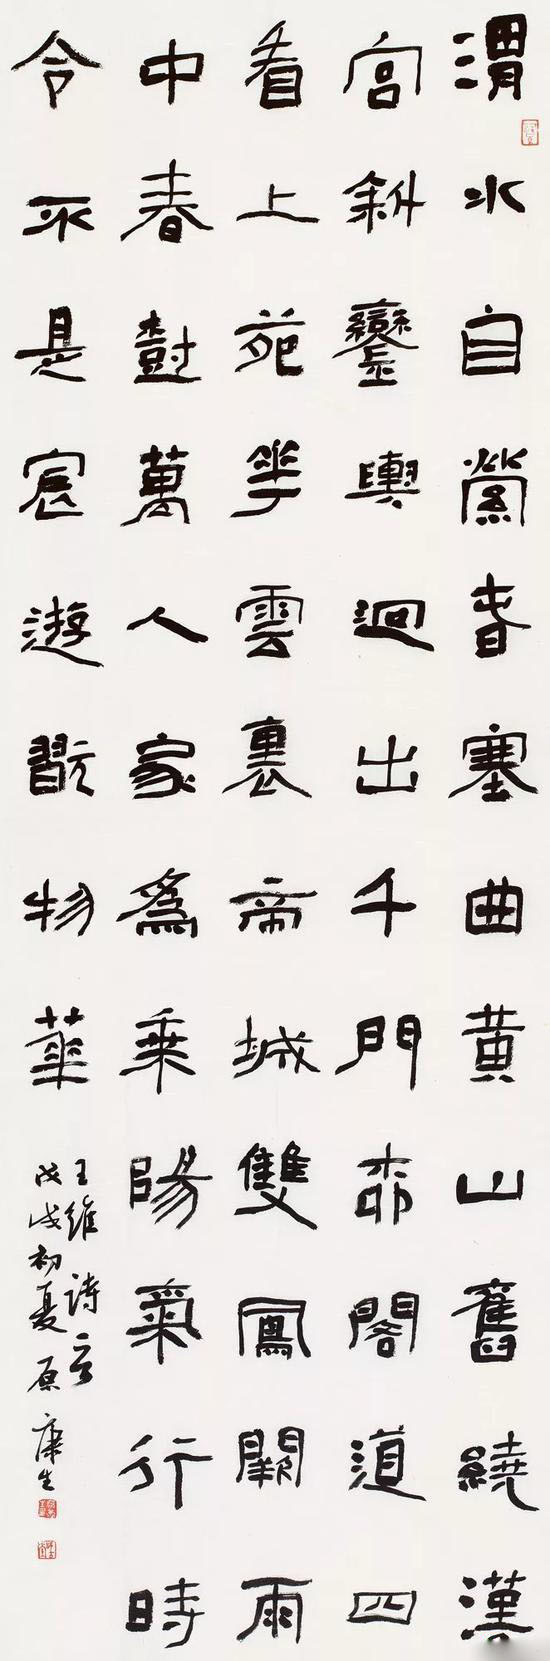 渭水自縈塞曲黃山舊繞漢
宮斜鑾輿迥出千門柳閣道回
看上苑花雲裏帝城雙鳳闕雨
中春樹萬人家爲乘陽氣行時
令不是宸遊翫物華
王維詩一首
戊戌初夏原康生